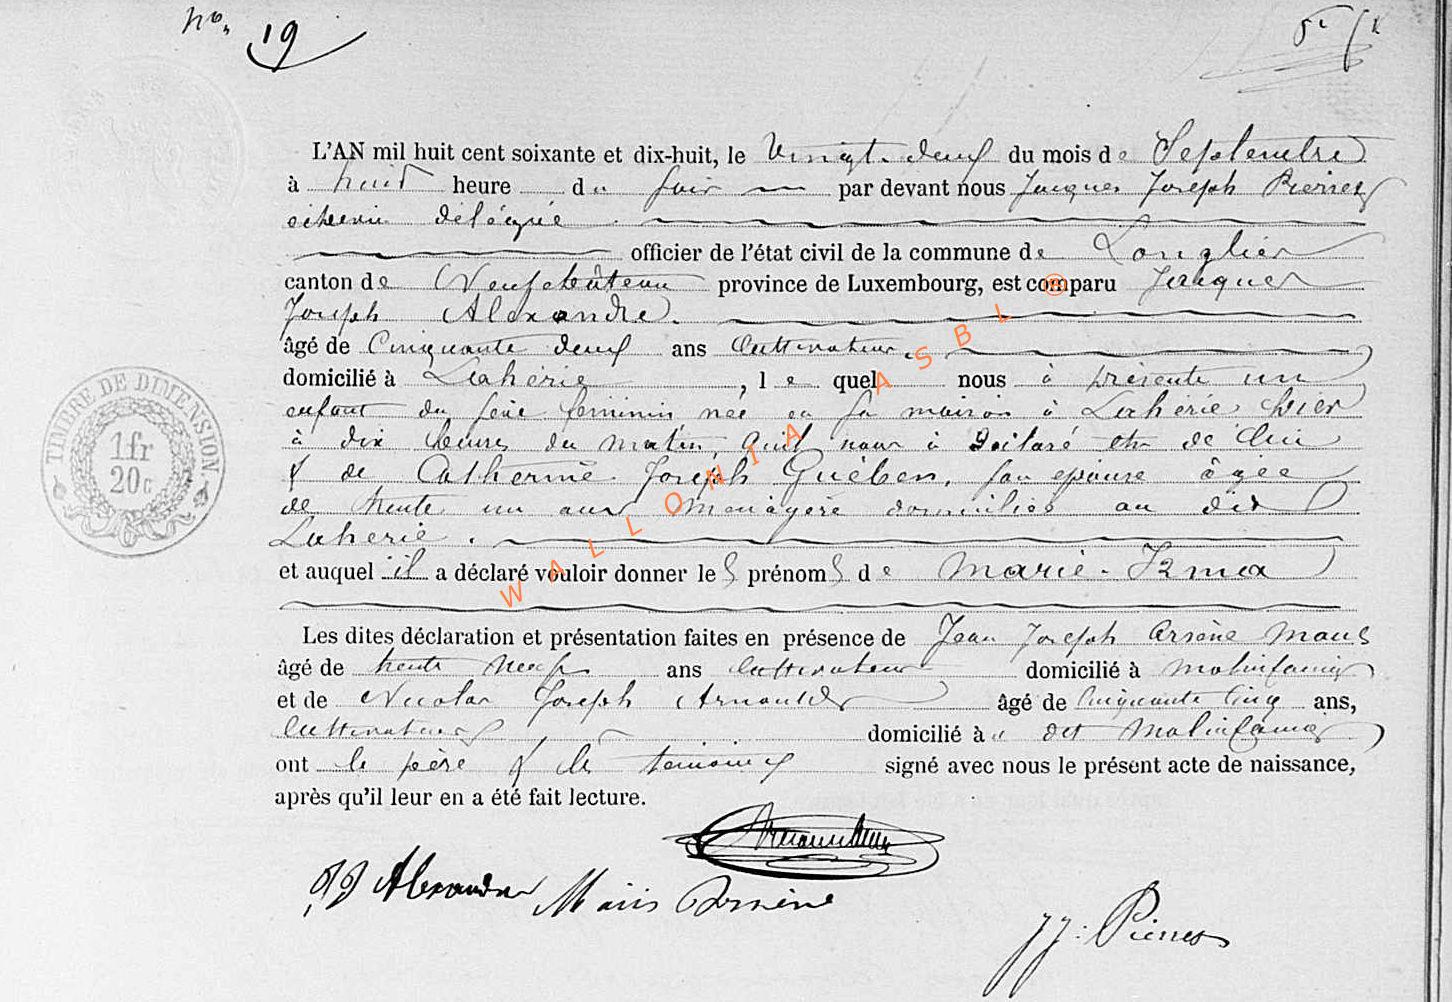 No. 19
L'AN mil huit cent soixante et dix-huit, le Vingt-deux du mois de Septembre
à huit heure du soir par devant nous Jacques Joseph Pierret
échevin délégué
officier de l'état civil de la commune de Longlier
canton de Neufchâteau province de Luxembourg, est comparu Jacques
Joseph Alexandre.
âgé de Cinquante deux ans Cultivateur,
domicilié à Laherie, le quel nous a présenté un
enfant du sexe feminin née en sa maison à Laherie hier
à dix heures du matin, qu'il nous a déclaré etre de lui
& de Catherine Joseph Guében, son epouse âgée
de trente un ans ménagère domiciliés au dit
Laherie.
et auquel il a déclaré vouloir donner les prénoms de Marie-Irma
Les dites déclaration et présentation faites en présence de Jean Joseph Arsène Maus
âgé de trente neuf ans Cultivateur domicilié à Molinfaing
et de Nicolas Joseph Arnould âgé de Cinquante Cinq ans,
Cultivateur domicilié à dit Molinfaing
ont le père & les témoins signé avec nous le présent acte de naissance,
après qu'il leur en a été fait lecture.
JJ Alexandre Arsène
JJ: Pierret
TIMBRE DE DIMENSION
1fr
20c
WALLONIA ASBL ®